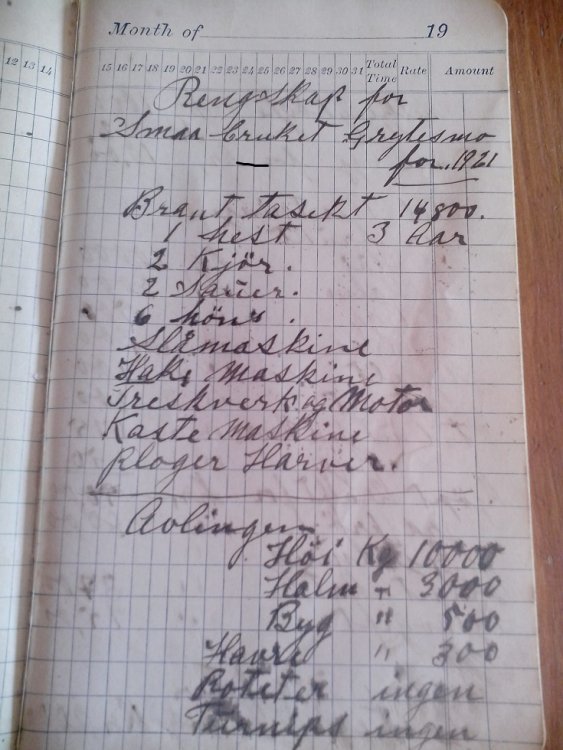 Month of 19
12 13 14
15 16 17 18 19 20 21 22 23 24 25 26 27 28 29 30 31 Total Time Rate Amount
Rengskap for
Smaa bruket Grytesmo
for. 1921
Brant tasekt 14800.
1 hest 3 Aar
2 Kjör.
2 Sauer.
6 höns.
Slåmaskine
Hake Maskine
Treskverk og Motor
Kaste maskine
Ploger Harver.
Avlingen
Höi Kg 10000
Halm " 3000
Byg " 500
Havre " 300
Poteter ingen
Turnips ingen